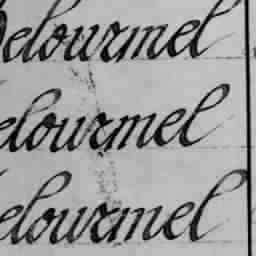 Delourmel
elourmel
elourmel